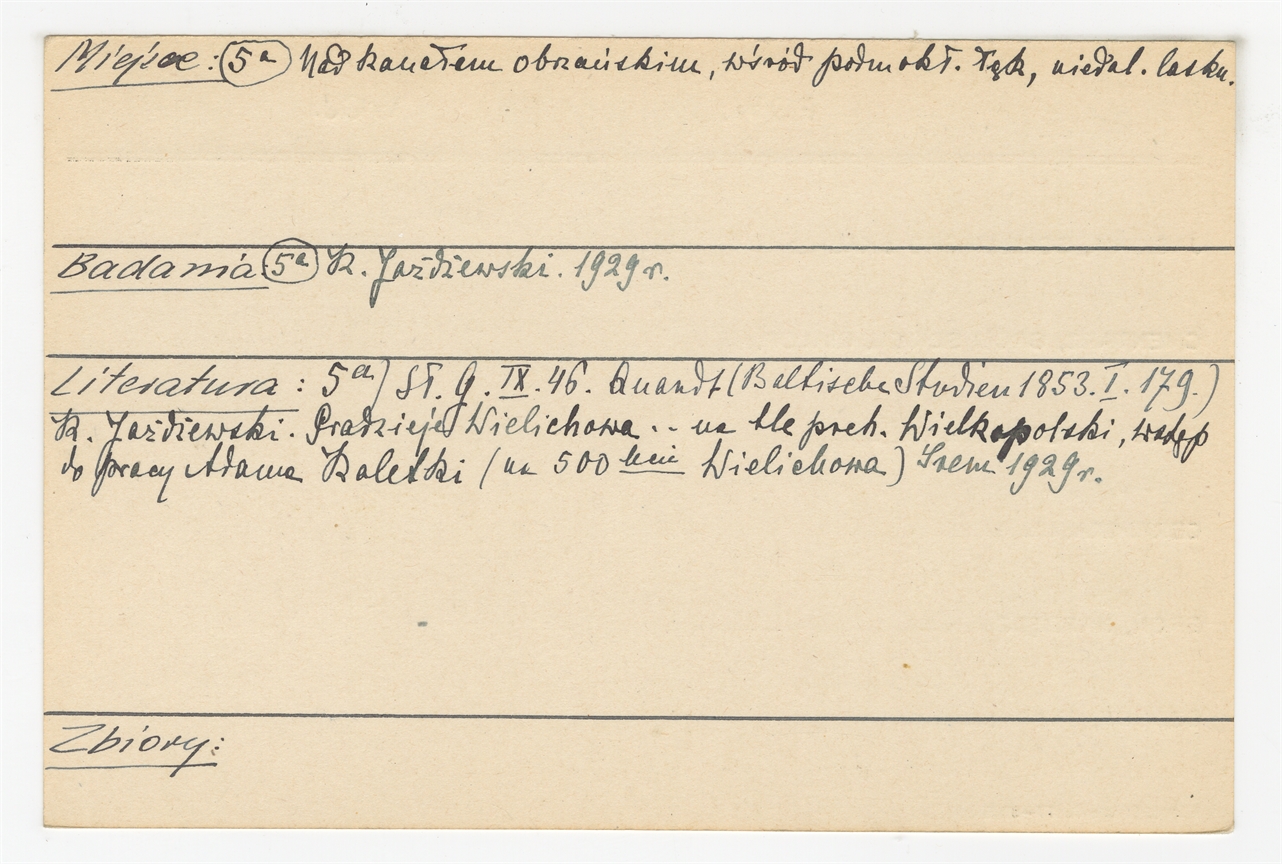 Miejsce: 5a Nad kanałem obrzańskim, wśród podmokł. łąk, niedal. lasku.
Badania 5a K. Jażdżewski. 1929 r.
Literatura: 5a) St. G. IX. 46. Quandt (Baltische Studien 1853. I. 179.)
K. Jażdżewski. Pradzieje Wielichowa .. na tle preh. Wielkopolski, wstęp
do pracy Adama Kaletki (na 500 lecie Wielichowa) Śrem 1929 r.
Zbiory: